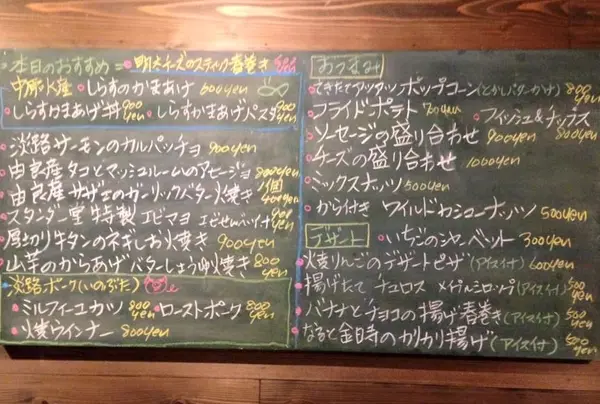 本日のおすすめ = 明太チーズのスティック春巻き
中郷水産 ・しらすのかまあげ 600yen
・しらすかまあげ丼 900yen ・しらすかまあげパスタ 900yen
淡路サーモンのカルパッチョ 900yen
由良産タコとマッシュルームのアヒージョ 800yen
由良産サザエのガーリックバター焼き 1個 400yen
スタンダード堂特製エビマヨ エビせんべい付 900yen
厚切り牛タンのネギしお焼き 900yen
山芋のからあげバターしょうゆ焼き 800yen
淡路ポーク(いのぶた)
・ミルフィーユカツ 800yen ・ローストポーク 800yen
・炙りウインナー 800yen
おつまみ
・できたてアツアツポップコーン(とかしバターかけ) 800yen
・フライドポテト 700yen ・フィッシュ&チップス 800yen
・ソーセージの盛り合わせ 900yen
・チーズの盛り合わせ 1000yen
・ミックスナッツ 500yen
・から付き ワイルドカシューナッツ 500yen
デザート ・いちごのシャーベット 300yen
・焼りんごのデザートピザ(アイス付) 600yen
・揚げたて チュロス メイプルシロップ(アイス付) 500yen
・バナナとチョコの揚げ春巻き(アイス付) 500yen
・なると金時のカリカリ揚げ(アイス付) 500yen